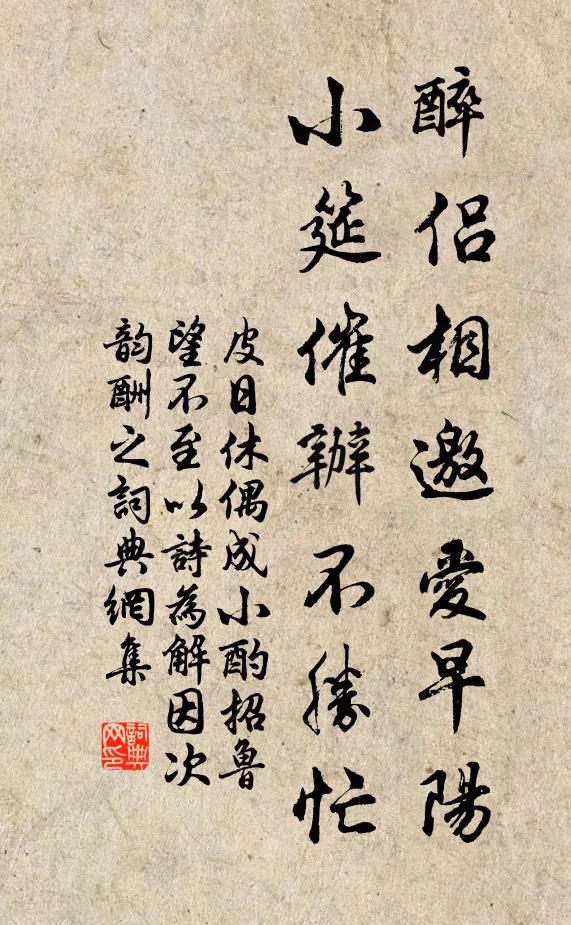 醉侶相邀愛早陽
小筵催辦不勝忙
皮日休偶成小酌招魯
望不至以詩為解因次
韵酬之詞典網集
詞典
网印